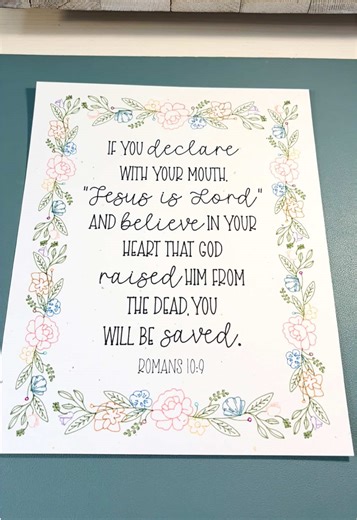 IF YOU declare
WITH YOUR MOUTH,
"Jesus is Lord"
AND believe IN YOUR
HEART THAT GOD
raised HIM FROM
THE DEAD, YOU
WILL BE saved.
ROMANS 10:9